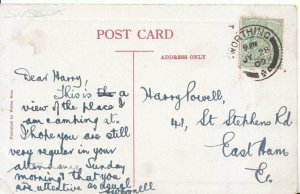 POST CARD
ADDRESS ONLY
WORTHING
9 PM
JY 28
09
Dear Harry,
This is a
view of the place I
am camping at.
I hope you are still
very regular in your
attendance Sunday
morning & that you
are attentive as usual
Harry Powell
41, St Stephens Rd
East Ham
E.